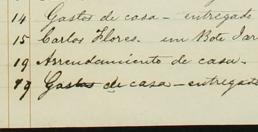 14 Gastos de casa — entregado
15 Carlos Flores. un Bote Jar
19 Arrendamiento de casa.
19 Gastos de casa — entregado